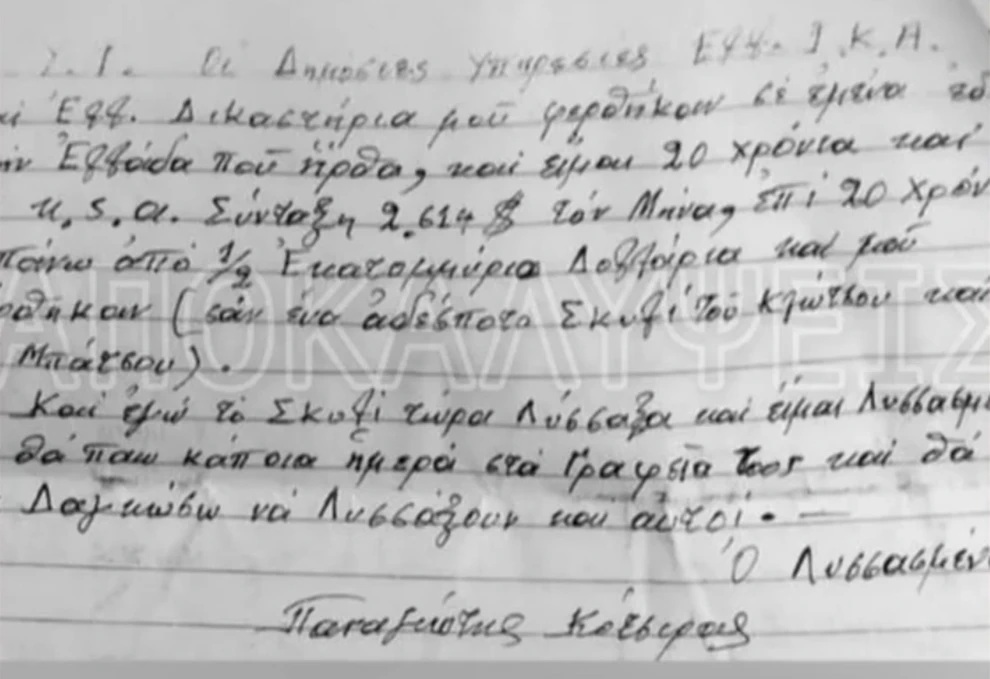 2.1. Οι Δημόσιες Υπηρεσίες Ελλ. Ι.Κ.Α.
αί Ἑλλ. Δικαστήρια μοῦ φερθῆκαν σέ ἐμένα ἐδ
ην Ἑλλάδα ποῦ ἦρθα, καί εἶμαι 20 χρόνια καί
U.S.A. Σύνταξη 2.614 $ τόν Μήνα, ἐπί 20 Χρόν
Πάνω ἀπό 1/2 Ἑκατομμύρια Δολλάρια καί μοῦ
ρθηκαν (σάν ἕνα ἀδέσποτο Σκυλί τοῦ Κλώτσου καί
Μπάτσου).
Καί ἐγώ τό Σκυλί τώρα Λύσσαξα καί εἶμαι Λυσσασμ
θά πάω κάποια ημερά στά Γραφεῖα τους καί θά
Δαγκώσω νά Λυσσάξουν καί αὐτοί. —
Ὁ Λυσσασμέν
Παναγιώτης
ΑΠΟΚΑΛΥΨΕΙΣ